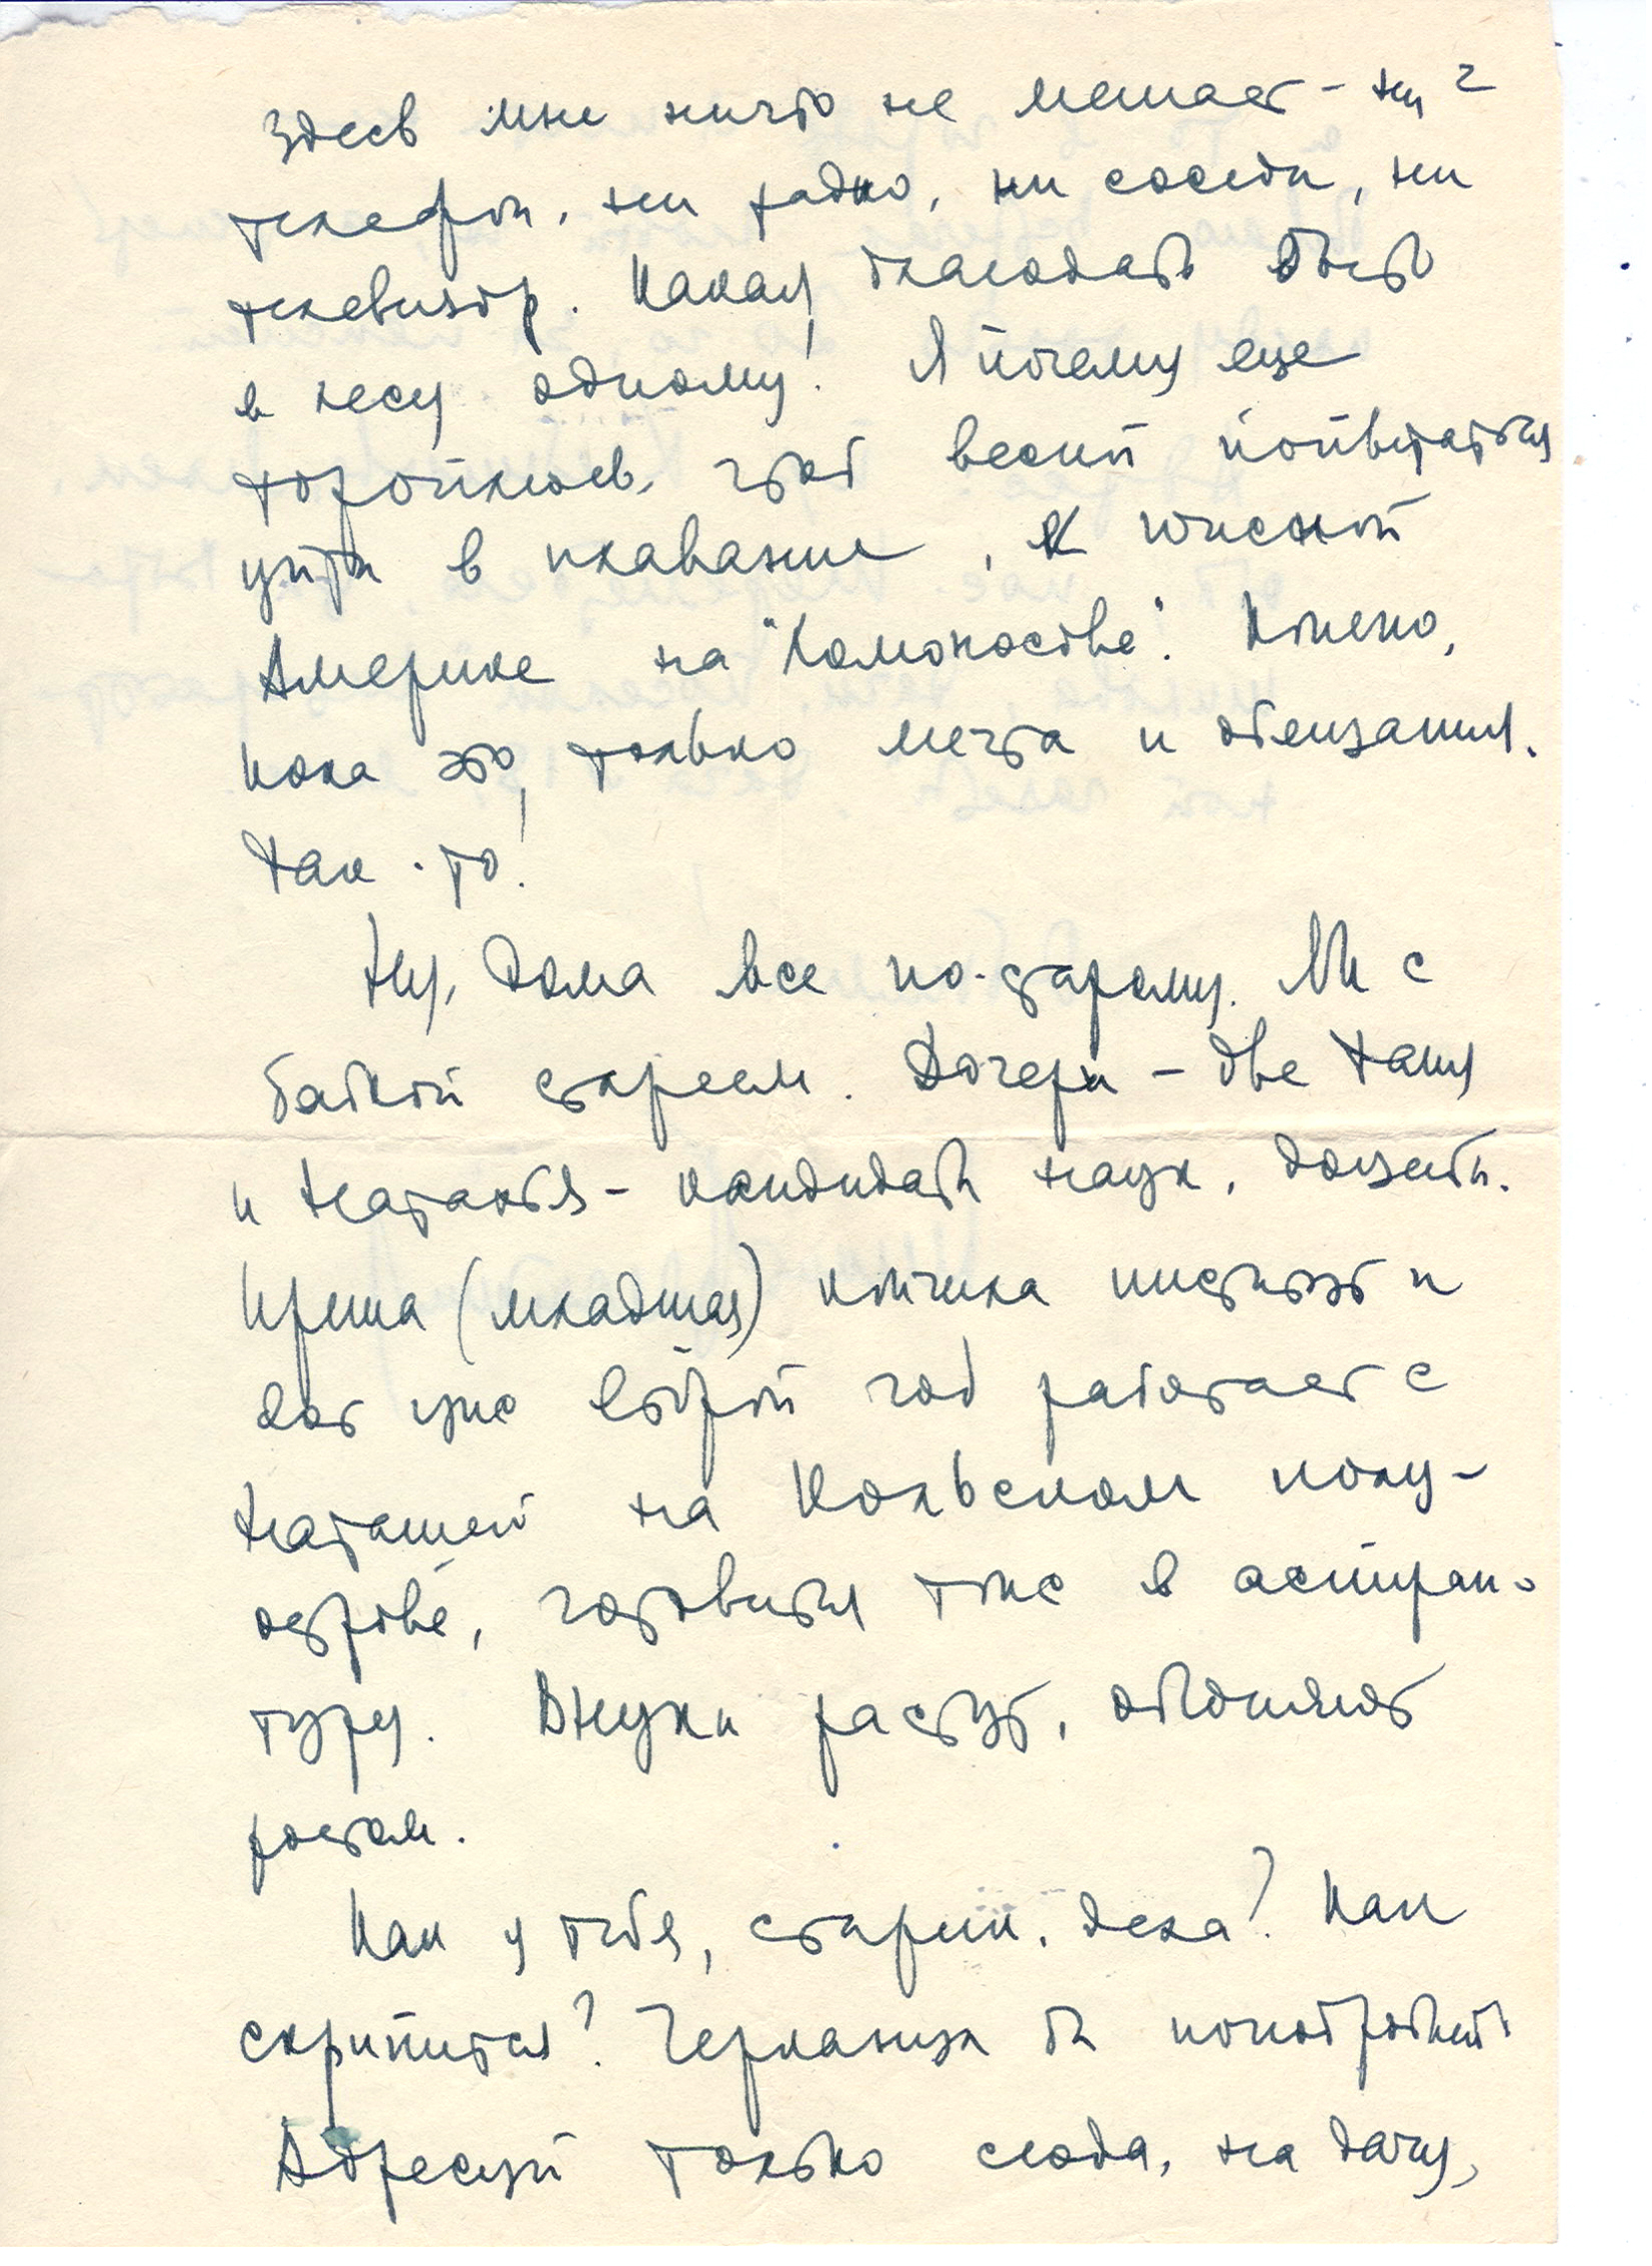 2
Здесь мне ничто не мешает - ни
телефон, ни радио, ни соседи, ни
телевизор. Какая благодать быть
в лесу одному! Я почему еще
тороплюсь, чтоб весной попытаться
уйти в плавание, к южной
Америке на "Ломоносове". Конечно,
пока это только мечта и обещания.
Так-то!
Ну, дома все по-старому. Мы с
бабкой стареем. Дочери - две Таня
и Наталья - кандидаты наук, доценты.
Ириша (младшая) кончила институт и
вот уже второй год работает с
Наташей на Кольском полу-
острове, готовится тоже в аспиран-
туру. Внуки растут, обгоняют
ростом.
Как у тебя, старик, дела? Как
скрипится? Черканул бы поподробней
Адресуй только сюда, на дачу,